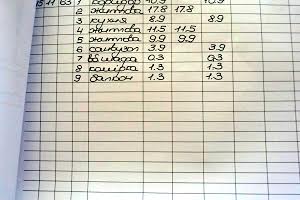 15 11 63 1 коридор 10.9 10.9
2 житлова 17.8 17.8
3 кухня 8.9 8.9
4 житлова 11.5 11.5
5 житлова 9.9 9.9
6 санвузол 3.9 3.9
7 0.3 0.3
8 комірка 1.3 1.3
9 балкон 1.3 1.3